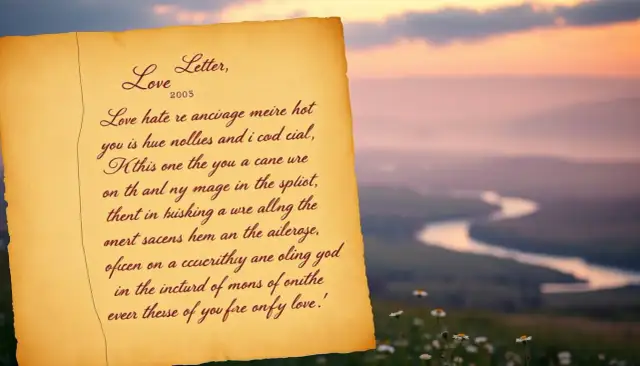 Love Letter,
2005
Love hate re ancivage meire hot
you is hue nollies and i cod cial,
H this one the you a cane ure
on th anl ny mage in the spliot,
thent in bisking a wre allng the
onert sacens hem an the ailerose,
ofucen on a ccucrithiy ane oling yod
in the incturd of mons of onithe
ever these of you fre onfy love.'